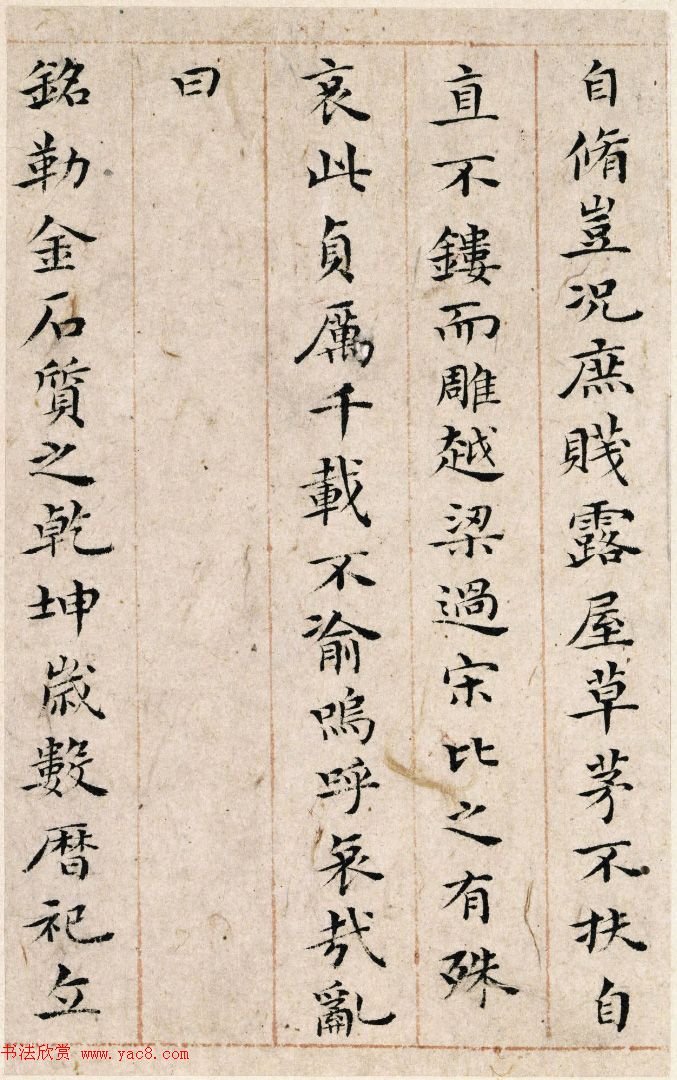 自脩豈况庶賤露屋草茅不扶自
直不鏤而雕越梁過宋比之有殊
哀此貞厲千載不渝嗚呼哀哉亂
曰
銘勒金石質之乾坤歲數曆祀立
书法欣赏 www.yac8.com